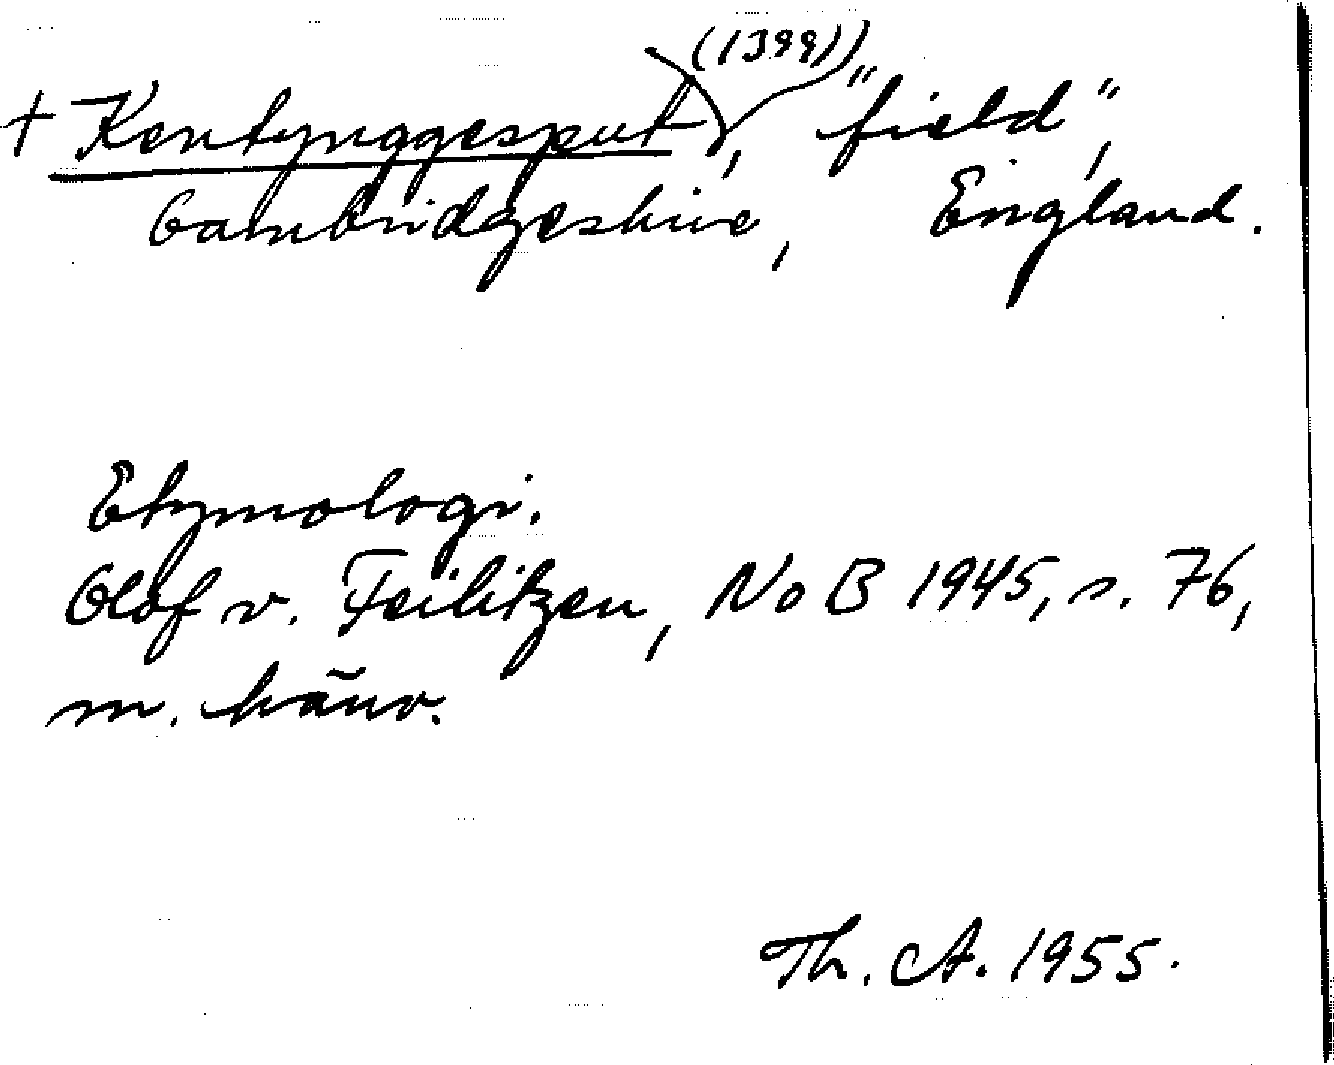 + Kentynggesput (1399), "field",
Cambridgeshire, England.
Etymologi.
Olof v. Feilitzen, NoB 1945, s. 76,
m. hänv.
Th. A. 1955.